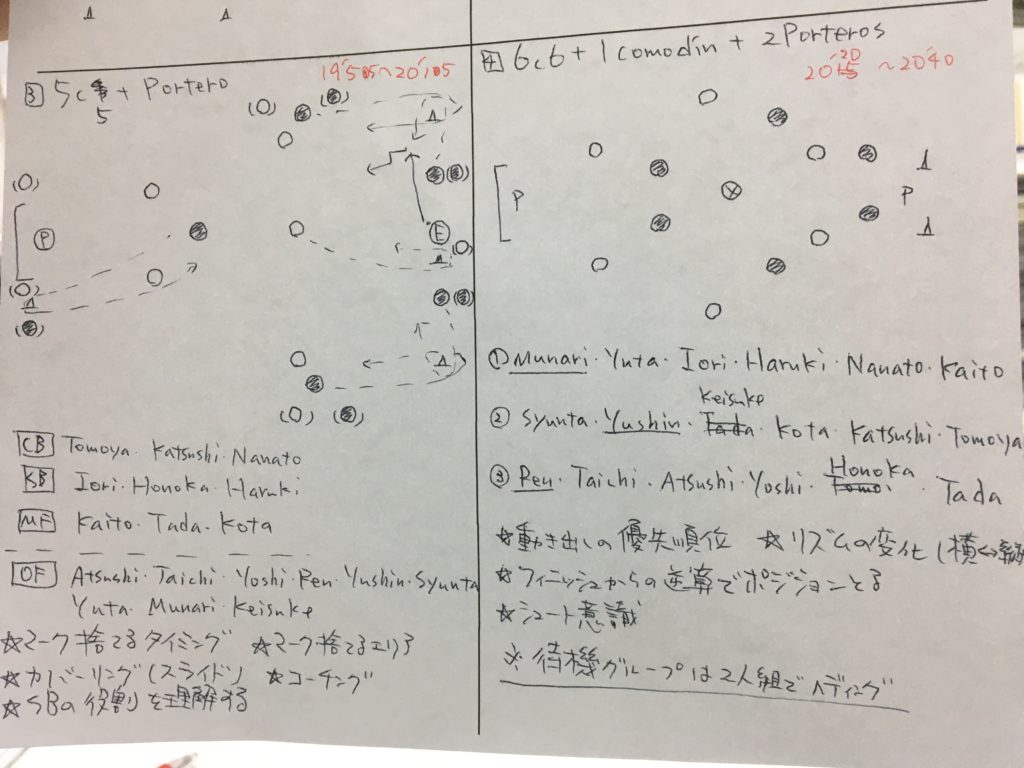 ③ 5c5 + Portero
19'505~20'105
(P)
(E)
CB Tomoya・Katsushi・Nanato
SB Iori・Honoka・Haruki
MF Kaito・Tada・Kota
OF Atsushi・Taichi・Yoshi・Ren・Yushin・Syunta
Yuta・Munari・Keisuke
☆マーク捨てるタイミング ☆マーク捨てるエリア
☆カバーリング(スライド) ☆コーチング
☆SBの役割を理解する
④ 6c6 + 1comodín + 2Porteros
20'20~20'40
P
P
① Munari・Yuta・Iori・Haruki・Nanato・Kaito
② Syunta・Yushin・Keisuke・Kota・Katsushi・Tomoya
③ Ren・Taichi・Atsushi・Yoshi・Honoka・Tada
☆動き出しの優先順位 ☆リズムの変化(横⇔縦
☆フィニッシュからの逆算でポジションとる
☆シュート意識
※待機グループは2人組でヘディング